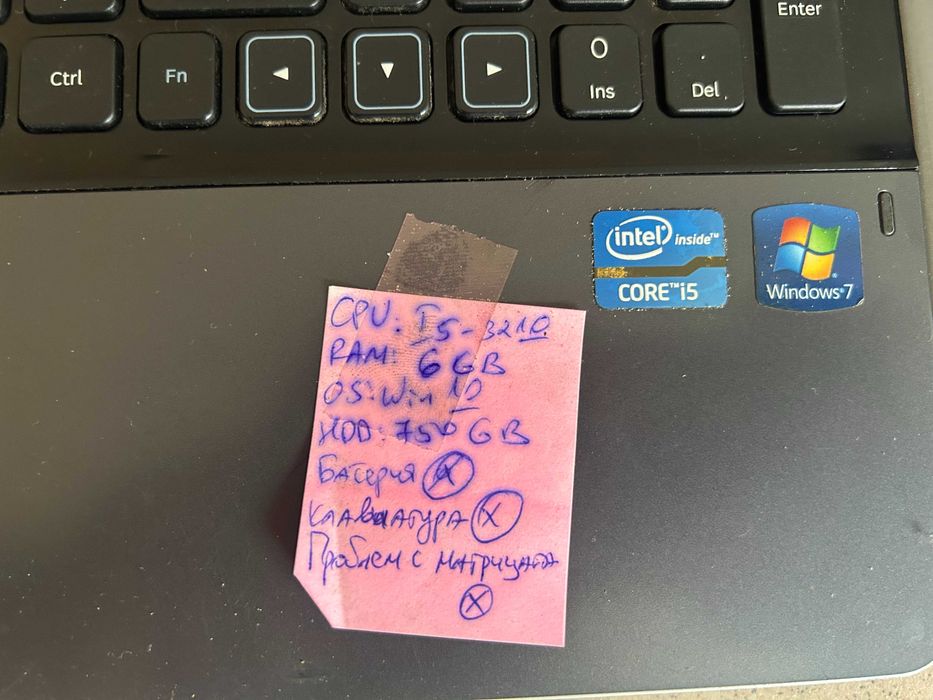 Enter
Ctrl
Fn
0
Ins
.
Del
intel inside™
CORE™i5
Windows®7
CPU: I5-3210
RAM: 6 GB
OS: Win 10
HDD: 750 GB
Батерия X
Клавиатура X
Проблем с матрицата
X